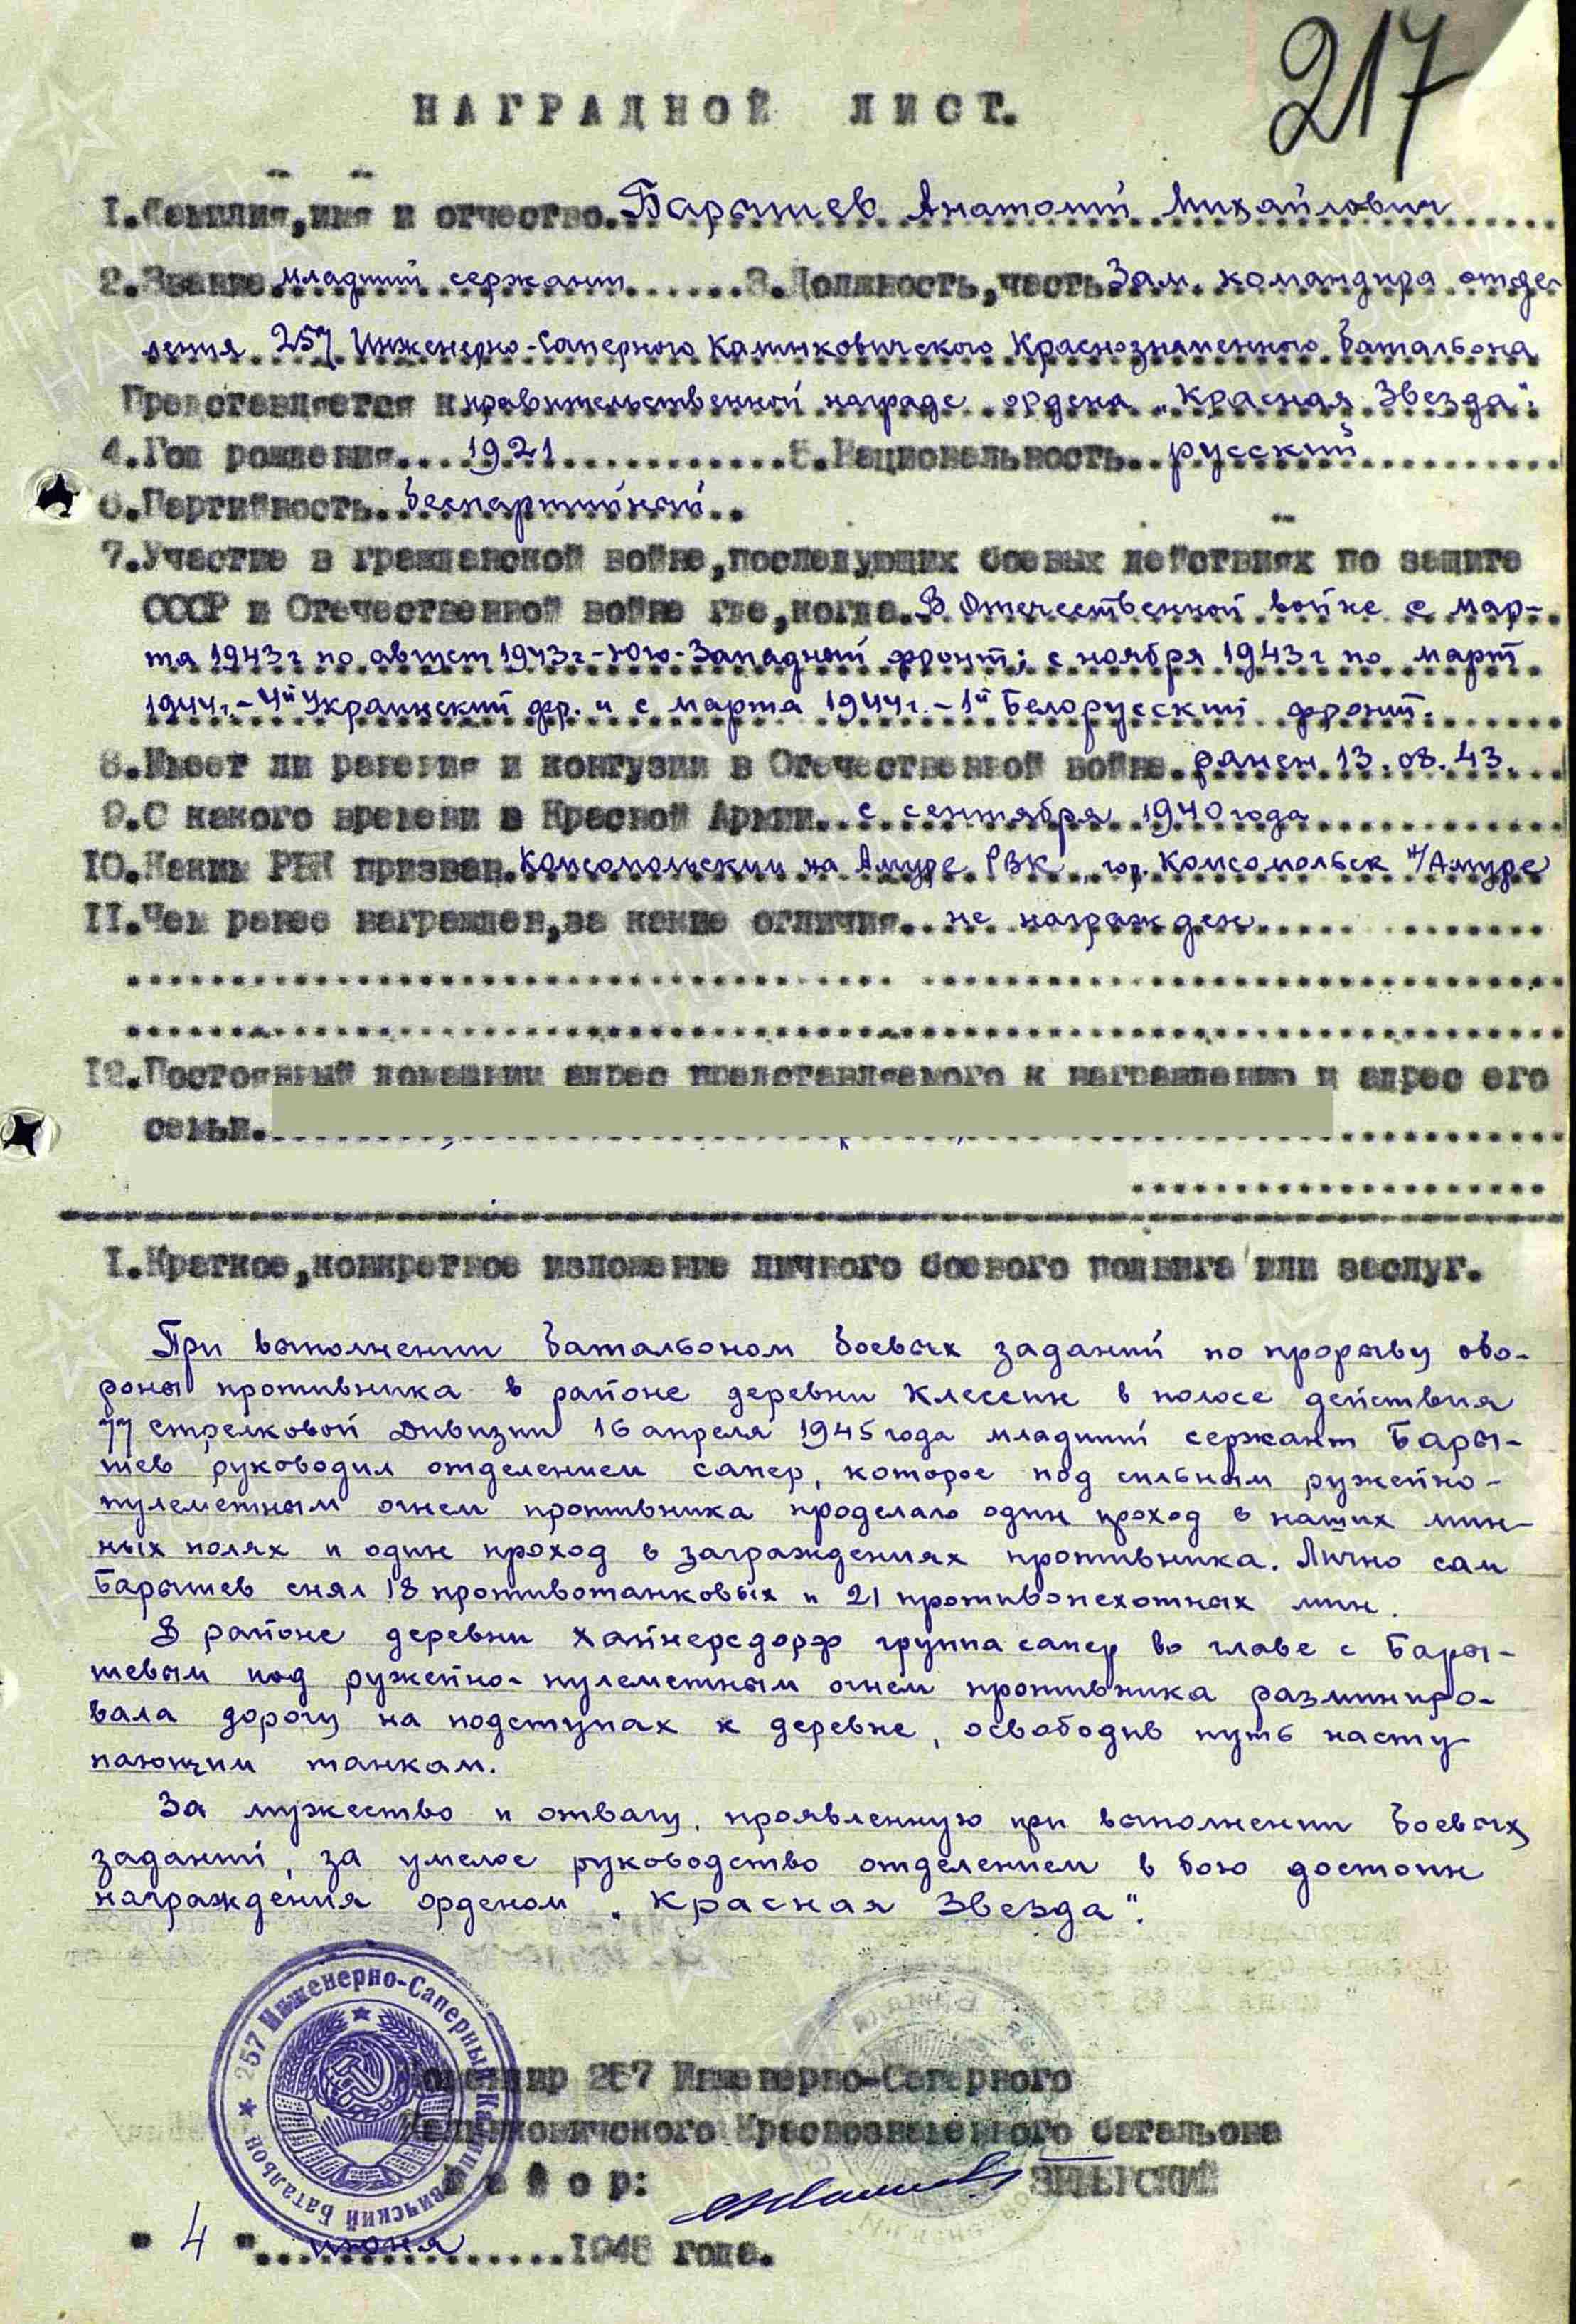 217
НАГРАДНОЙ ЛИСТ.
I.Фамилия,имя и отчество. Барышев Анатолий Михайлович
2.Звание младший сержант 3.Должность,часть Зам. командира отде-
ления 257 Инженерно-Саперного Калинковичского Краснознаменного батальона
Представляется к правительственной награде ордена „Красная Звезда".
4.Год рождения 1921 5.Национальность русский
6.Партийность беспартийный
7.Участие в гражданской войне,последующих боевых действиях по защите
СССР и Отечественной войне где,когда. В Отечественной войне с мар-
та 1943г по август 1943г-Юго-Западный фронт; с ноября 1943г по март
1944г.-4й Украинский фр. и с марта 1944г.-1й Белорусский фронт.
8.Имеет ли ранения и контузии в Отечественной войне ранен 13.08.43
9.С какого времени в Красной Армии с сентября 1940 года
10.Каким РВК призван. Комсомольским на Амуре РВК, гор. Комсомольск н/Амуре
II.Чем ранее награжден,за какие отличия не награжден
12.Постоянный домашний адрес представляемого к награждению и адрес его
семьи.
I.Краткое,конкретное изложение личного боевого подвига или заслуг.
При выполнении батальоном боевых заданий по прорыву обо-
роны противника в районе деревни Клессин в полосе действия
77 стрелковой Дивизии 16 апреля 1945 года младший сержант Бары-
шев руководил отделением сапер, которое под сильным ружейно-
пулеметным огнем противника проделало один проход в наших мин-
ных полях и один проход в заграждениях противника. Лично сам
Барышев снял 18 противотанковых и 21 противопехотных мин.
В районе деревни Хайнерсдорф группа сапер во главе с Бары-
шевым под ружейно-пулеметным огнем противника разминиро-
вала дорогу на подступах к деревне, освободив путь насту
пающим танкам.
За мужество и отвагу, проявленную при выполнении боевых
заданий, за умелое руководство отделением в бою достоин
награждения орденом „Красная Звезда".
257 Инженерно-Саперный Калинковичский Батальон
Командир 257 Инженерно-Саперного
Калинковичского Краснознаменного батальона
Майор:
"4" июня 1945 года.